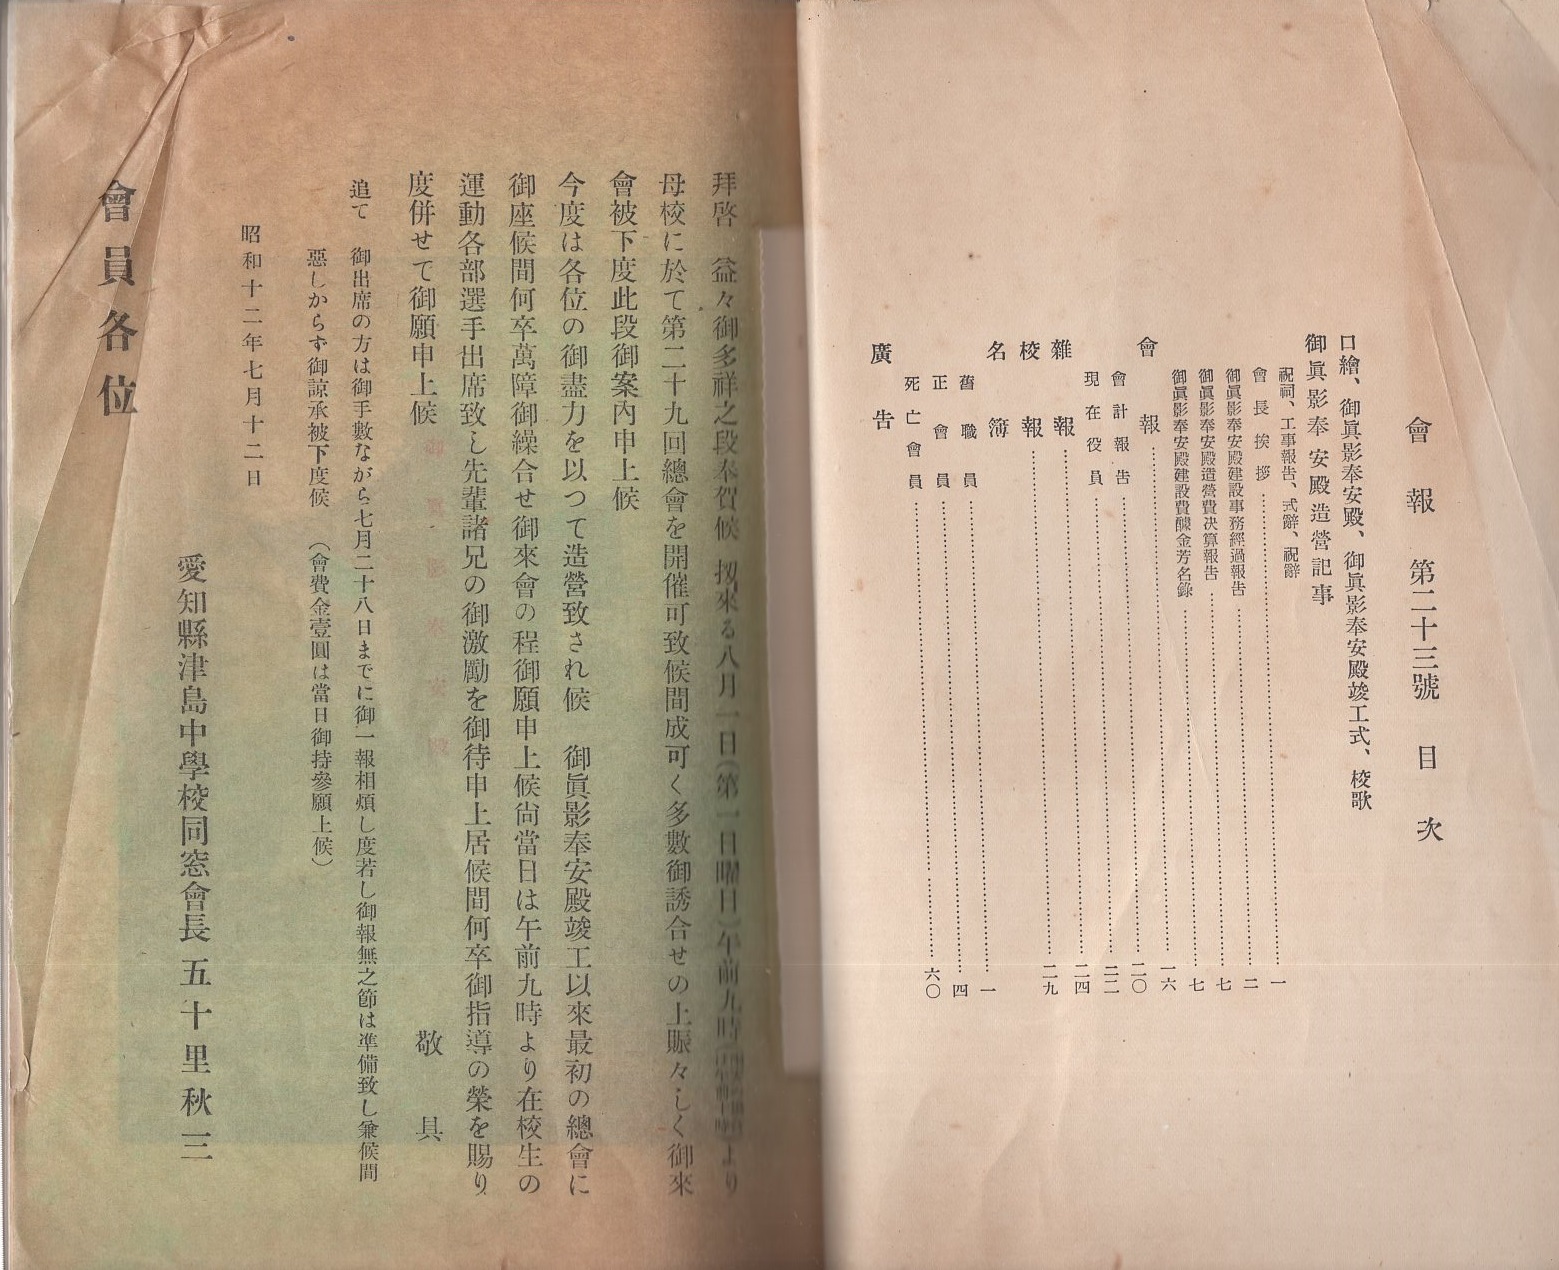 會報 第二十三號 目次
口繪、御眞影奉安殿、御眞影奉安殿竣工式、校歌
御眞影奉安殿造營記事
祝祠、工事報告、式辭、祝辭
會長挨拶……一
御眞影奉安殿建設事務經過報告……二
御眞影奉安殿造營費決算報告……七
御眞影奉安殿建設費醵金芳名錄……七
會報……一六
會計報告……二〇
現在役員……二二
雜報……二四
校報……二九
名簿
舊職員……一
正會員……四
死亡會員……六〇
廣告
拜啓 益々御多祥之段奉賀候 扨來る八月一日(第一日曜日)午前九時より
母校に於て第二十九回總會を開催可致候間成可く多數御誘合せの上賑々しく御來
會被下度此段御案內申上候
今度は各位の御盡力を以つて造營致され候 御眞影奉安殿竣工以來最初の總會に
御座候間何卒萬障御繰合せ御來會の程御願申上候尙當日は午前九時より在校生の
運動各部選手出席致し先輩諸兄の御激勵を御待申上居候間何卒御指導の榮を賜り
度併せて御願申上候
敬具
追て 御出席の方は御手數ながら七月二十八日までに御一報相煩し度若し御報無之節は準備致し兼候間
惡しからず御諒承被下度候 (會費金壹圓は當日御持參願上候)
昭和十二年七月十二日
愛知縣津島中學校同窓會長 五十里秋三
會員各位